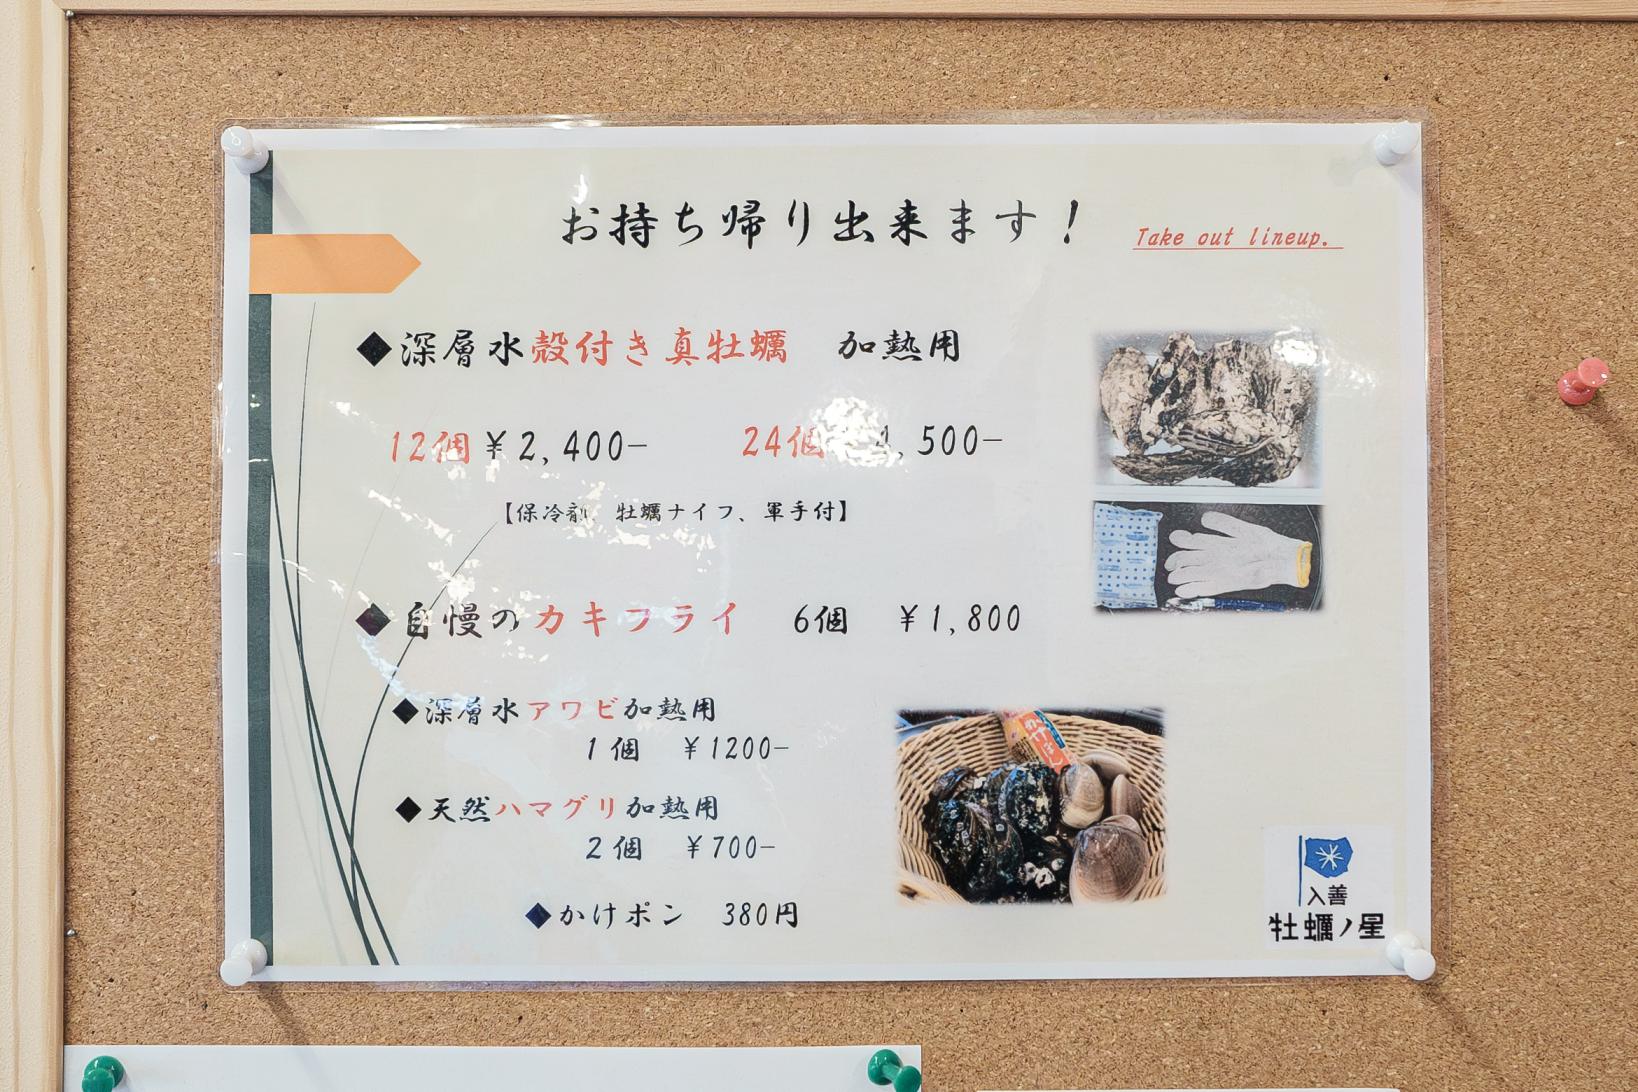 お持ち帰り出来ます！
Take out lineup.
◆深層水殻付き真牡蠣　加熱用
12個￥2,400−　24個 ,500−
【保冷剤　牡蠣ナイフ、軍手付】
◆自慢のカキフライ　6個　￥1,800
◆深層水アワビ加熱用
1個　￥1200−
◆天然ハマグリ加熱用
2個　￥700−
◆かけポン　380円
入善
牡蠣ノ星